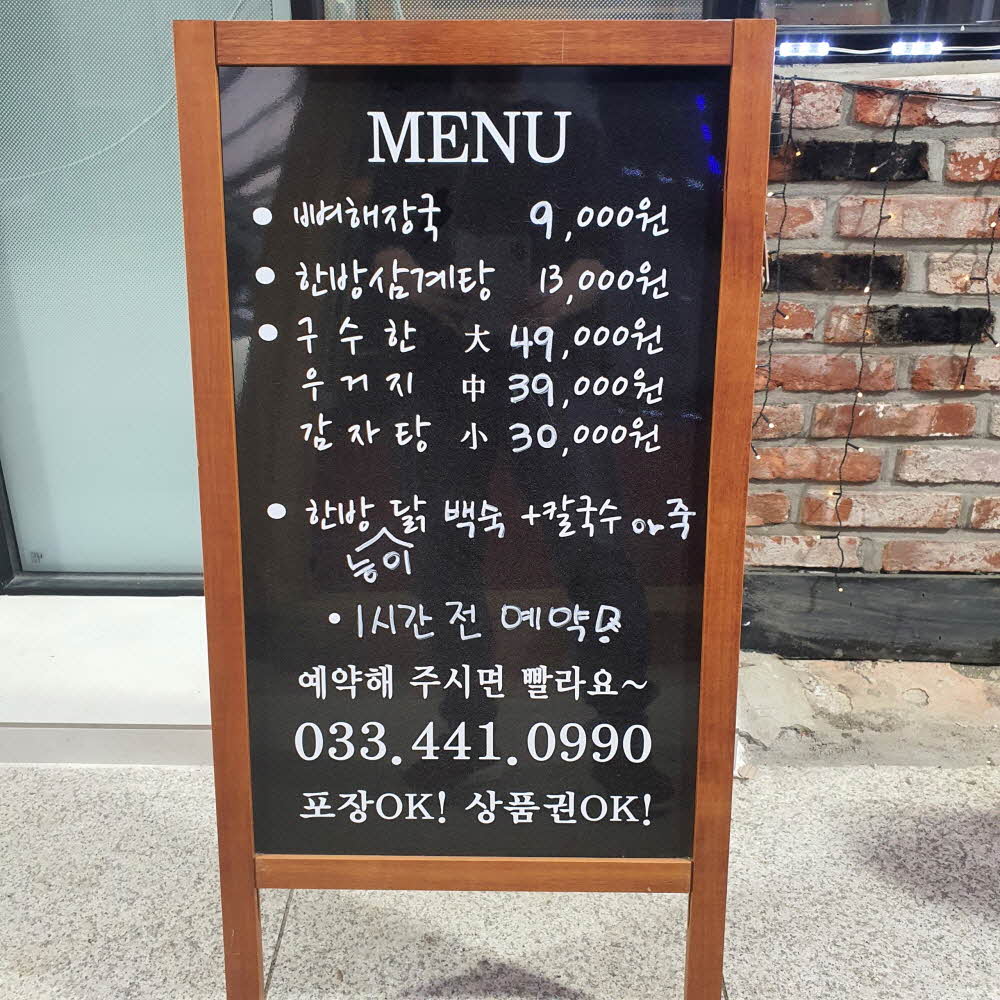 MENU
• 뼈해장국 9,000원
• 한방삼계탕 13,000원
• 구수한 大 49,000원
우거지 中 39,000원
감자탕 小 30,000원
• 한방 닭 백숙 +칼국수 or 죽
능이
• 1시간 전 예약
예약해 주시면 빨라요~
033.441.0990
포장OK! 상품권OK!